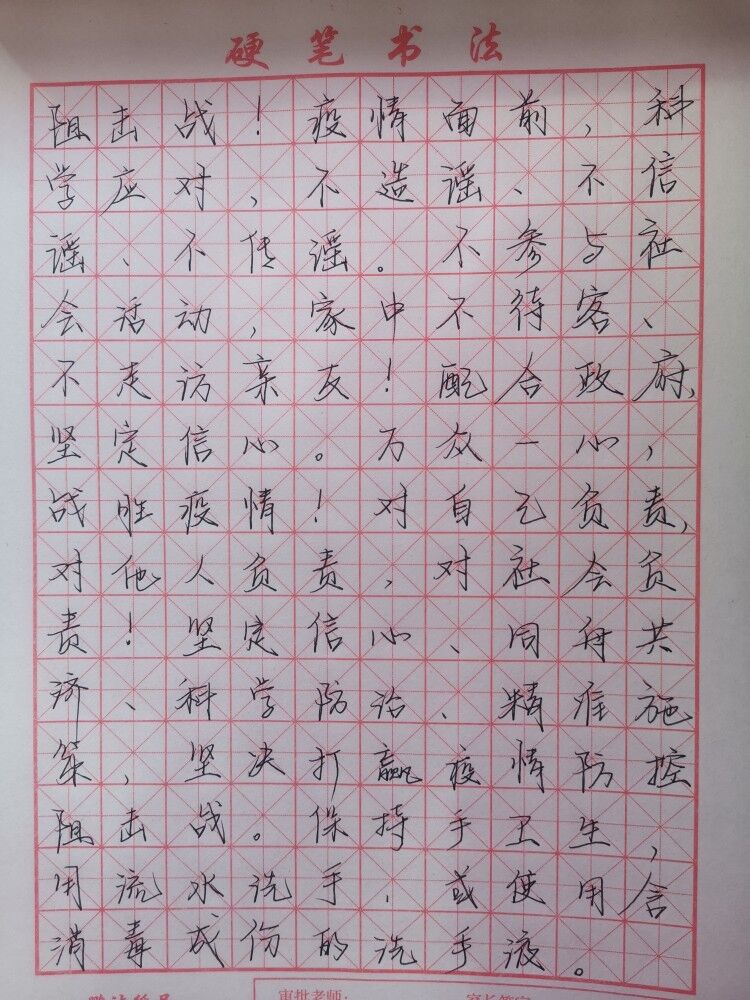 硬笔书法
阻击战！疫情面前，科
学应对，不造谣、不信
谣、不传谣。不参与社
会活动，家中不待客、
不走访亲友！配合政府，
坚定信心。万众一心，
战胜疫情！对自己负责，
对他人负责，对社会负
责！坚定信心、同舟共
济、科学防治、精准施
策，坚决打赢疫情防控
阻击战。保持手卫生，
用流水洗手，或使用含
消毒成份的洗手液。
审批老师：